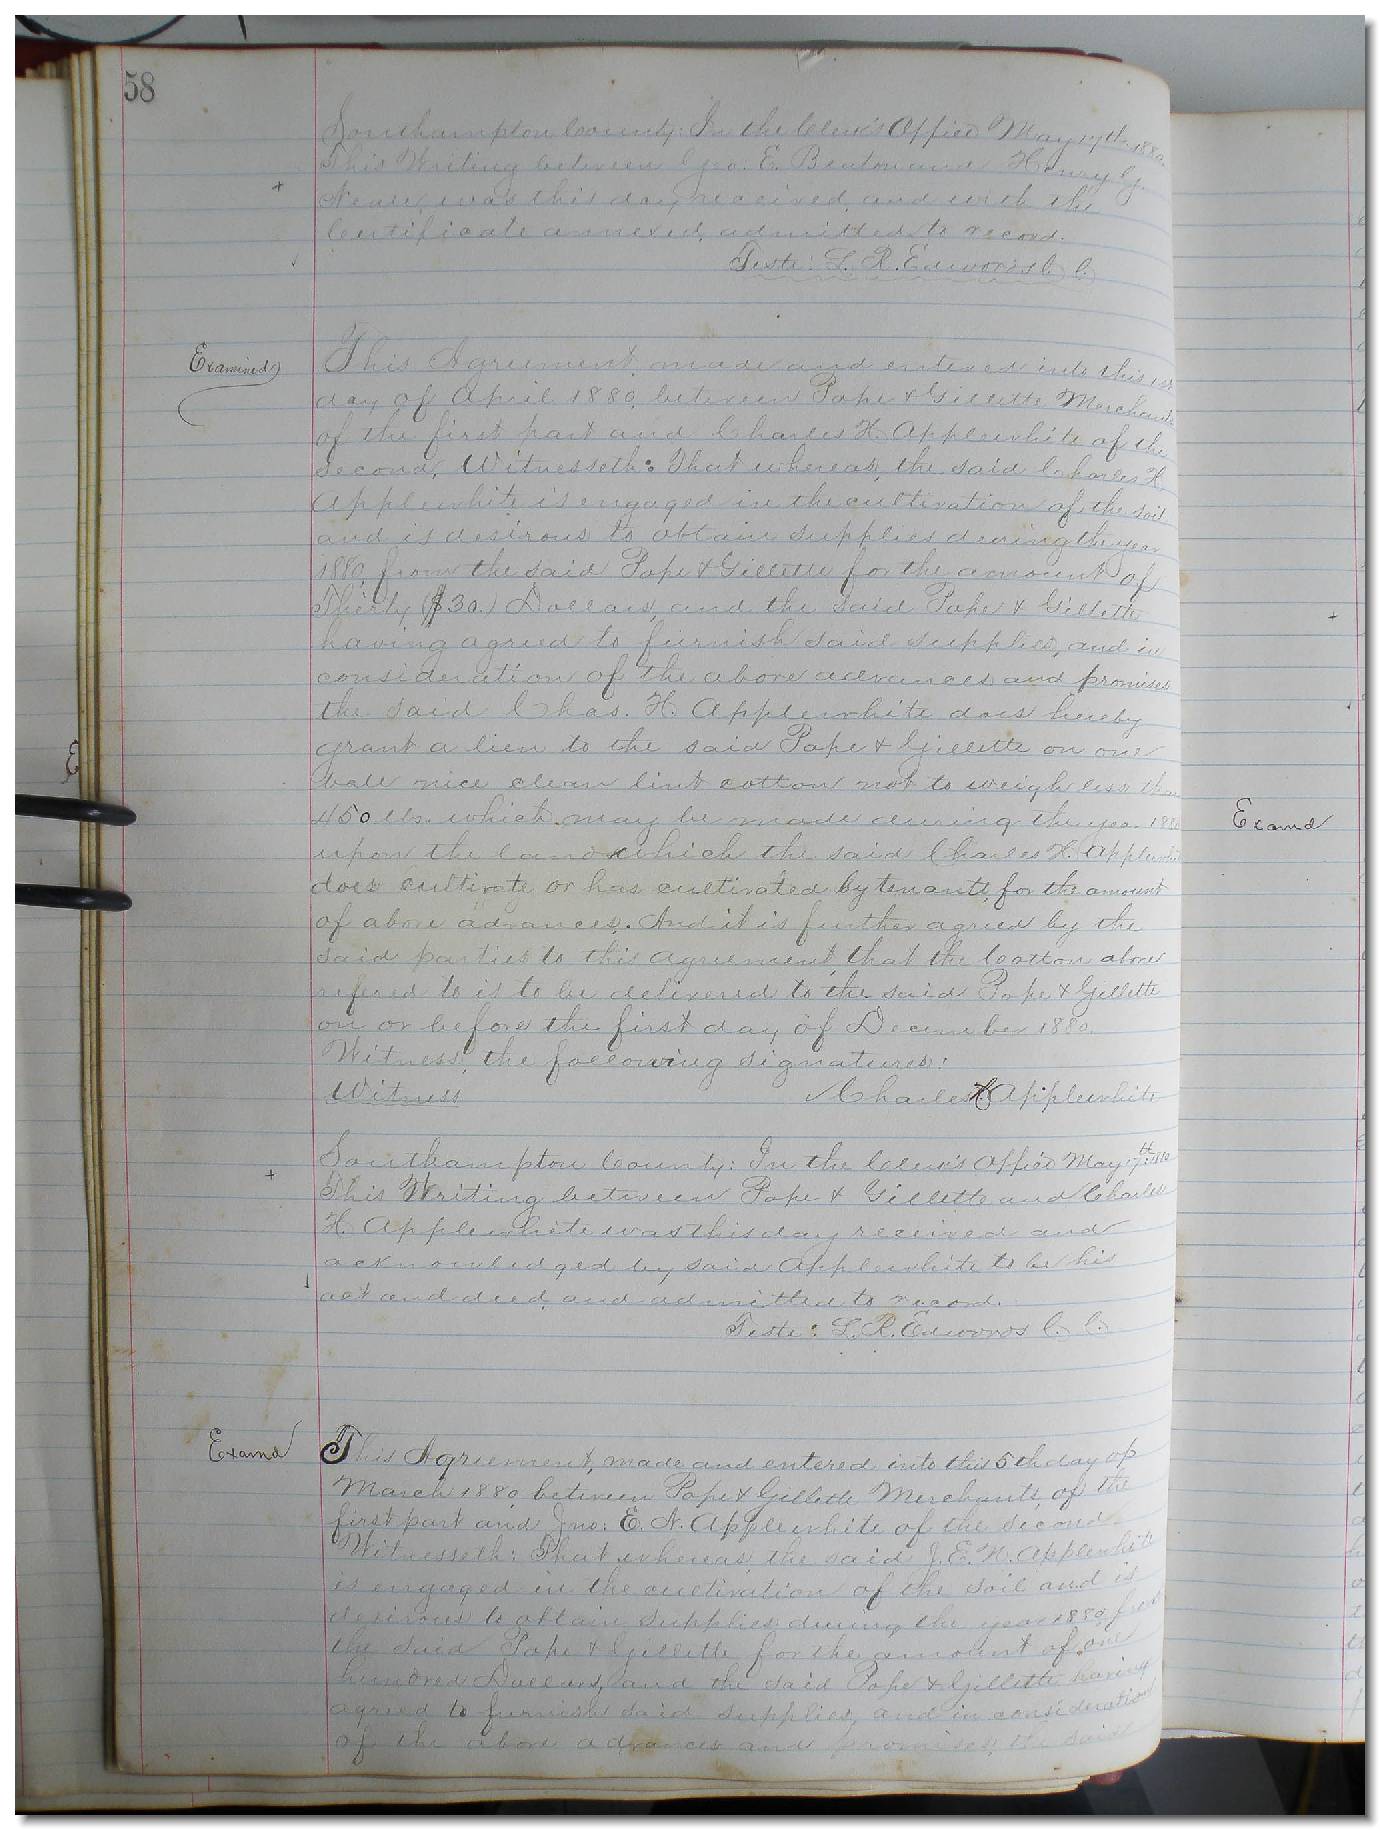 58
Southampton County: In the Clerk's Office May 17th 1880.
This Writing between Jno. E. Beaton and Henry G.
was this day received, and with the
Certificate annexed, admitted to record.
Teste: L. R. Edwards C. C.
Examined
This Agreement, made and entered into this 1st
day of April 1880, between Pope & Gillette Merchants
of the first part and Charles H. Applewhite of the
Second, Witnesseth: That whereas, the said Charles H.
Applewhite is engaged in the cultivation of the soil
and is desirous to obtain supplies during the year
1880, from the said Pope & Gillette for the amount of
Thirty ($30.) Dollars, and the said Pope & Gillette
having agreed to furnish said supplies, and in
consideration of the above advances and promises
the said Chas. H. Applewhite does hereby
grant a lien to the said Pope & Gillette on one
bale nice clean lint cotton not to weigh less than
450 lbs. which may be made during the year 1880
upon the land which the said Charles H. Applewhite
does cultivate or has cultivated by tenants, for the amount
of above advances. And it is further agreed by the
said parties to this Agreement, that the Cotton above
refered to is to be delivered to the said Pope & Gillette
on or before the first day of December 1880.
Witness, the following signatures:
Witness Charles H. Applewhite
Southampton County: In the Clerk's Office May 17th 1880
This Writing between Pope & Gillette and Charles
H. Applewhite was this day received and
acknowledged by said Applewhite to be his
act and deed, and admitted to record.
Teste: L. R. Edwards C. C.
Examd
This Agreement, made and entered into this 5th day of
March 1880, between Pope & Gillette Merchants, of the
first part and Jno: E. N. Applewhite of the second.
Witnesseth: That whereas, the said J. E. N. Applewhite
is engaged in the cultivation of the soil and is
desirous to obtain supplies during the year 1880, from
the said Pope & Gillette for the amount of one
hundred Dollars, and the said Pope & Gillette having
agreed to furnish said supplies, and in consideration
of the above advances and promises, the said
Examd